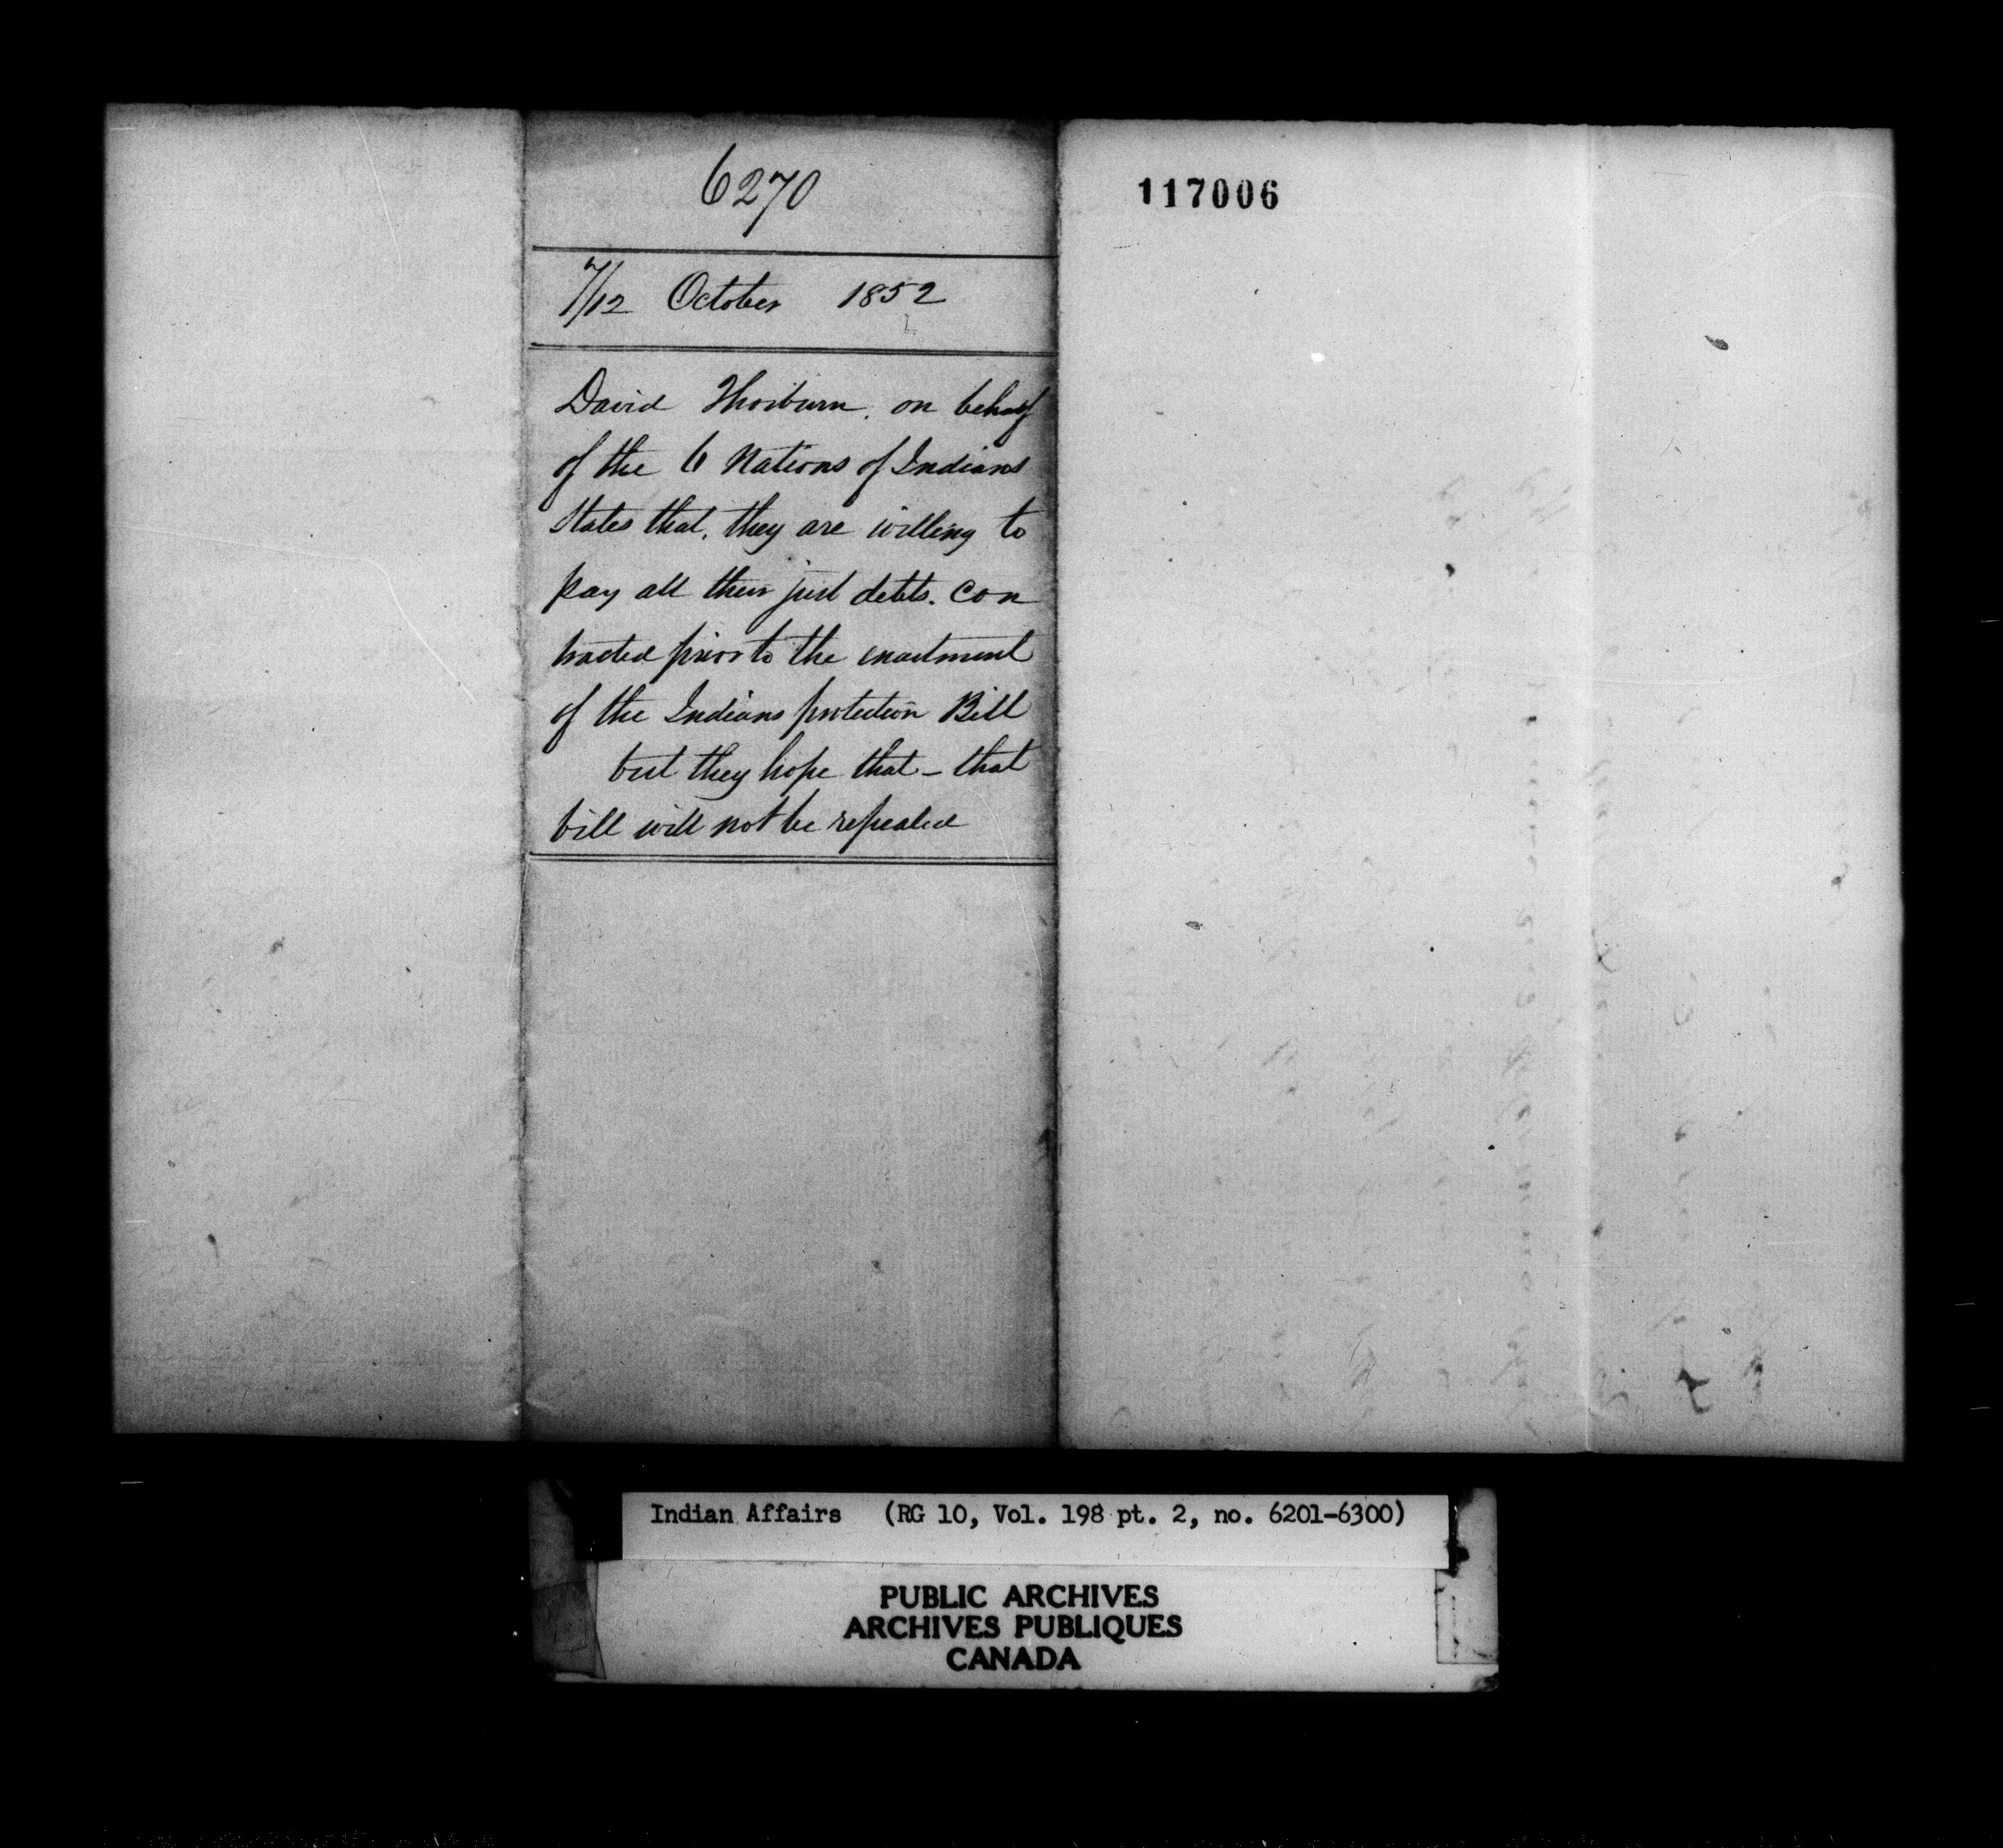 6270
7/12 October 1852
David Thorburn. on behalf
of the 6 Nations of Indians
States that, they are willing to
pay all their just debts. Con
tracted prior to the enactment
of the Indians protection Bill
but they hope that - that
bill will not be repealed
117006
Indian Affairs (RG 10, Vol. 198 pt. 2, no. 6201-6300)
PUBLIC ARCHIVES
ARCHIVES PUBLIQUES
CANADA